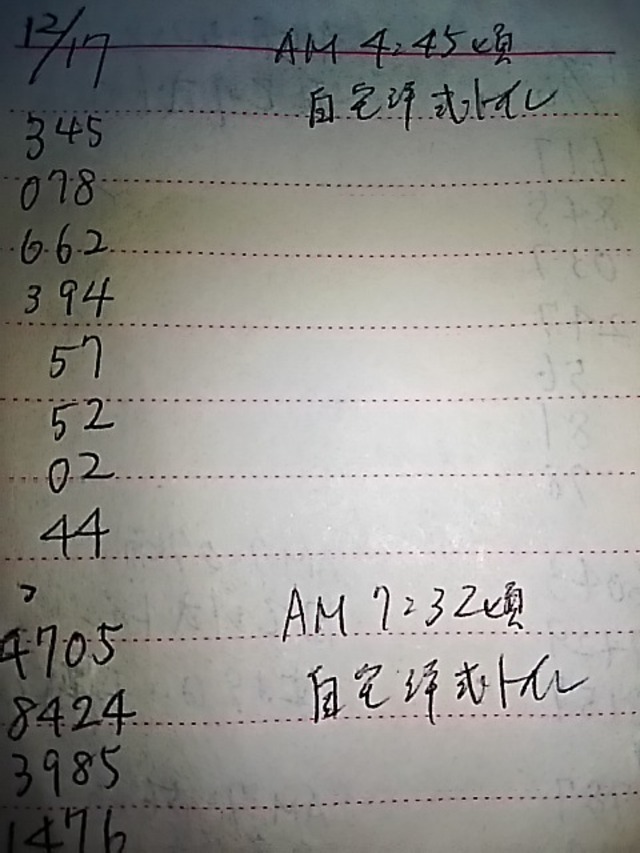 12/17 AM 4:45頃
自宅洋式トイレ
345
078
662
394
57
52
02
44
〃 AM 7:32頃
4705 自宅洋式トイレ
8424
3985
1476